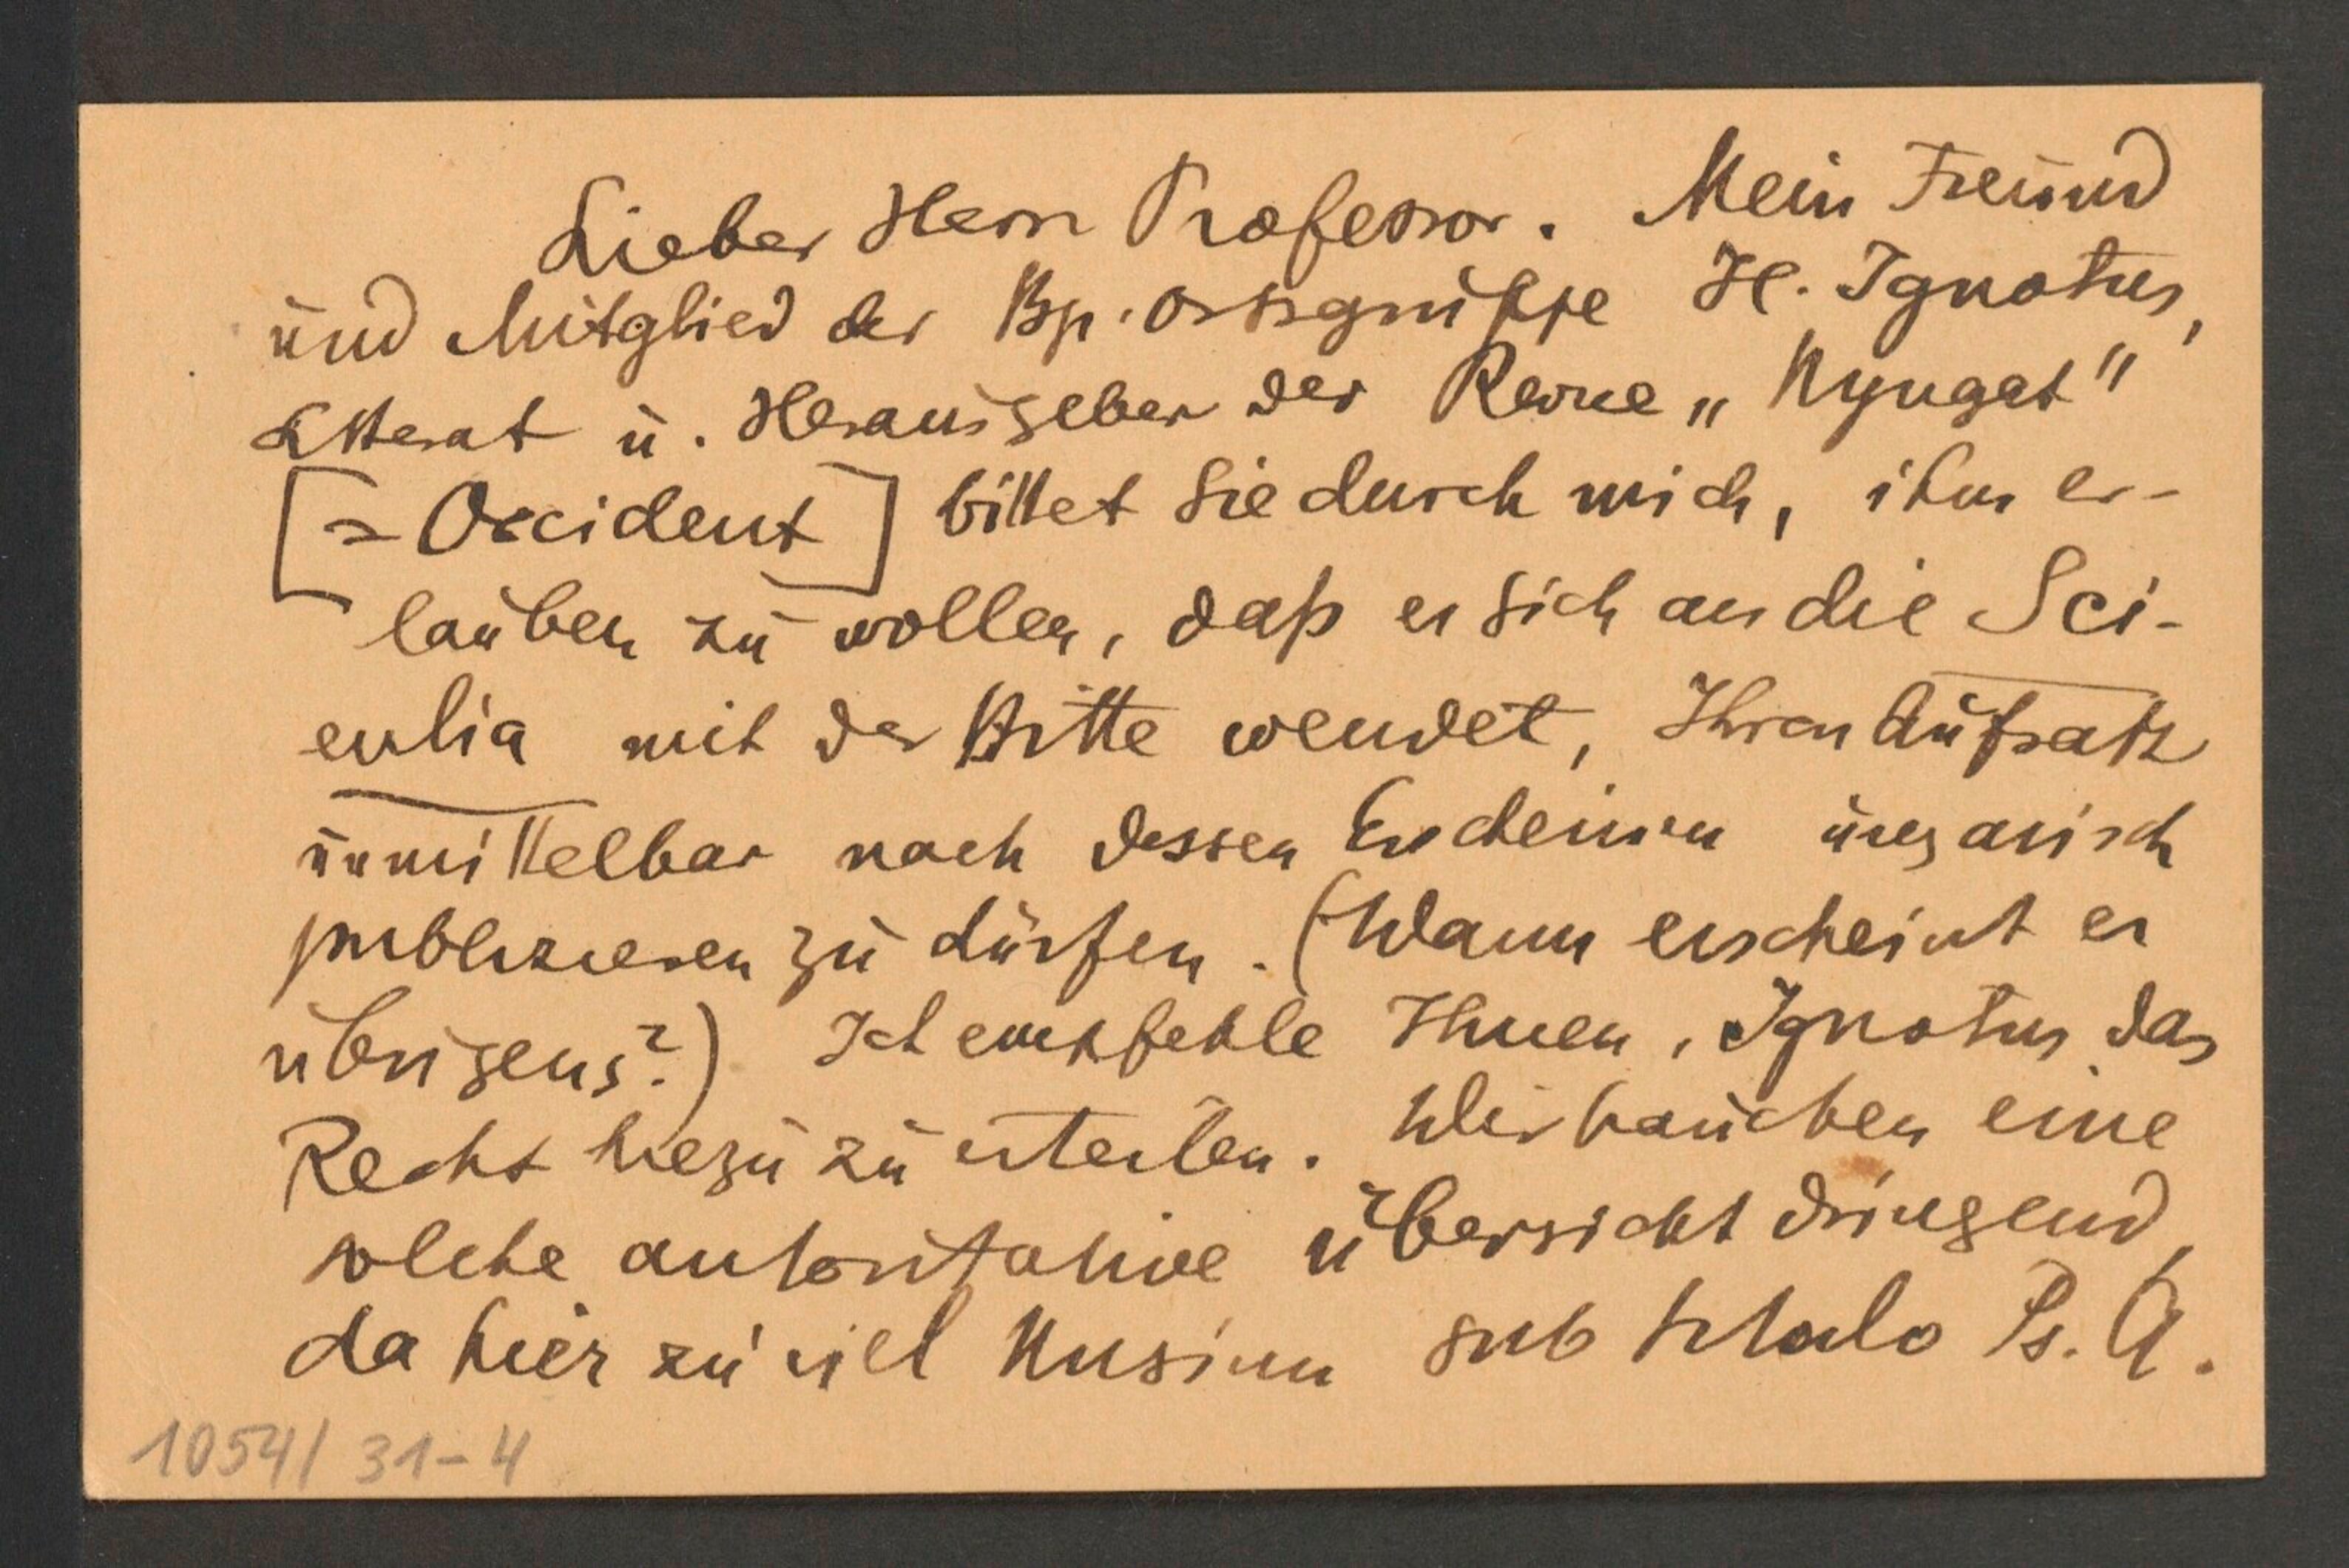 Lieber Herr Professor. Mein Freund
und Mitglied der Bp. Ortsgruppe H. Ignotus,
Litterat u. Herausgeber der Revue „Nyugat"
[= Occident] bittet Sie durch mich, ihm er-
lauben zu wollen, daß er sich an die Sci-
entia mit der Bitte wendet, Ihren Aufsatz
unmittelbar nach dessen Erscheinen ungarisch
publizieren zu dürfen. (Wann erscheint er
übrigens?) Ich empfehle Ihnen, Ignotus das
Recht hiezu zu erteilen. Wir brauchen eine
solche autoritative Übersicht dringend,
da hier zu viel Unsinn sub titulo Ps. A.
1054/31-4